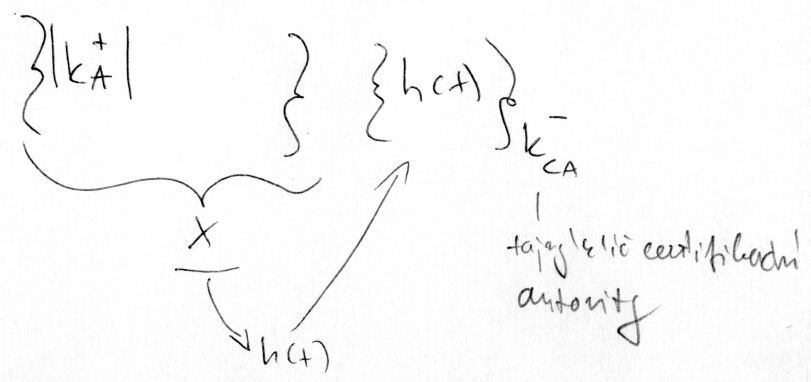 }|k_A^+| } {h(x)}_{k_{CA}^-}
X
tajný klíč certifikační
autority
h(x)